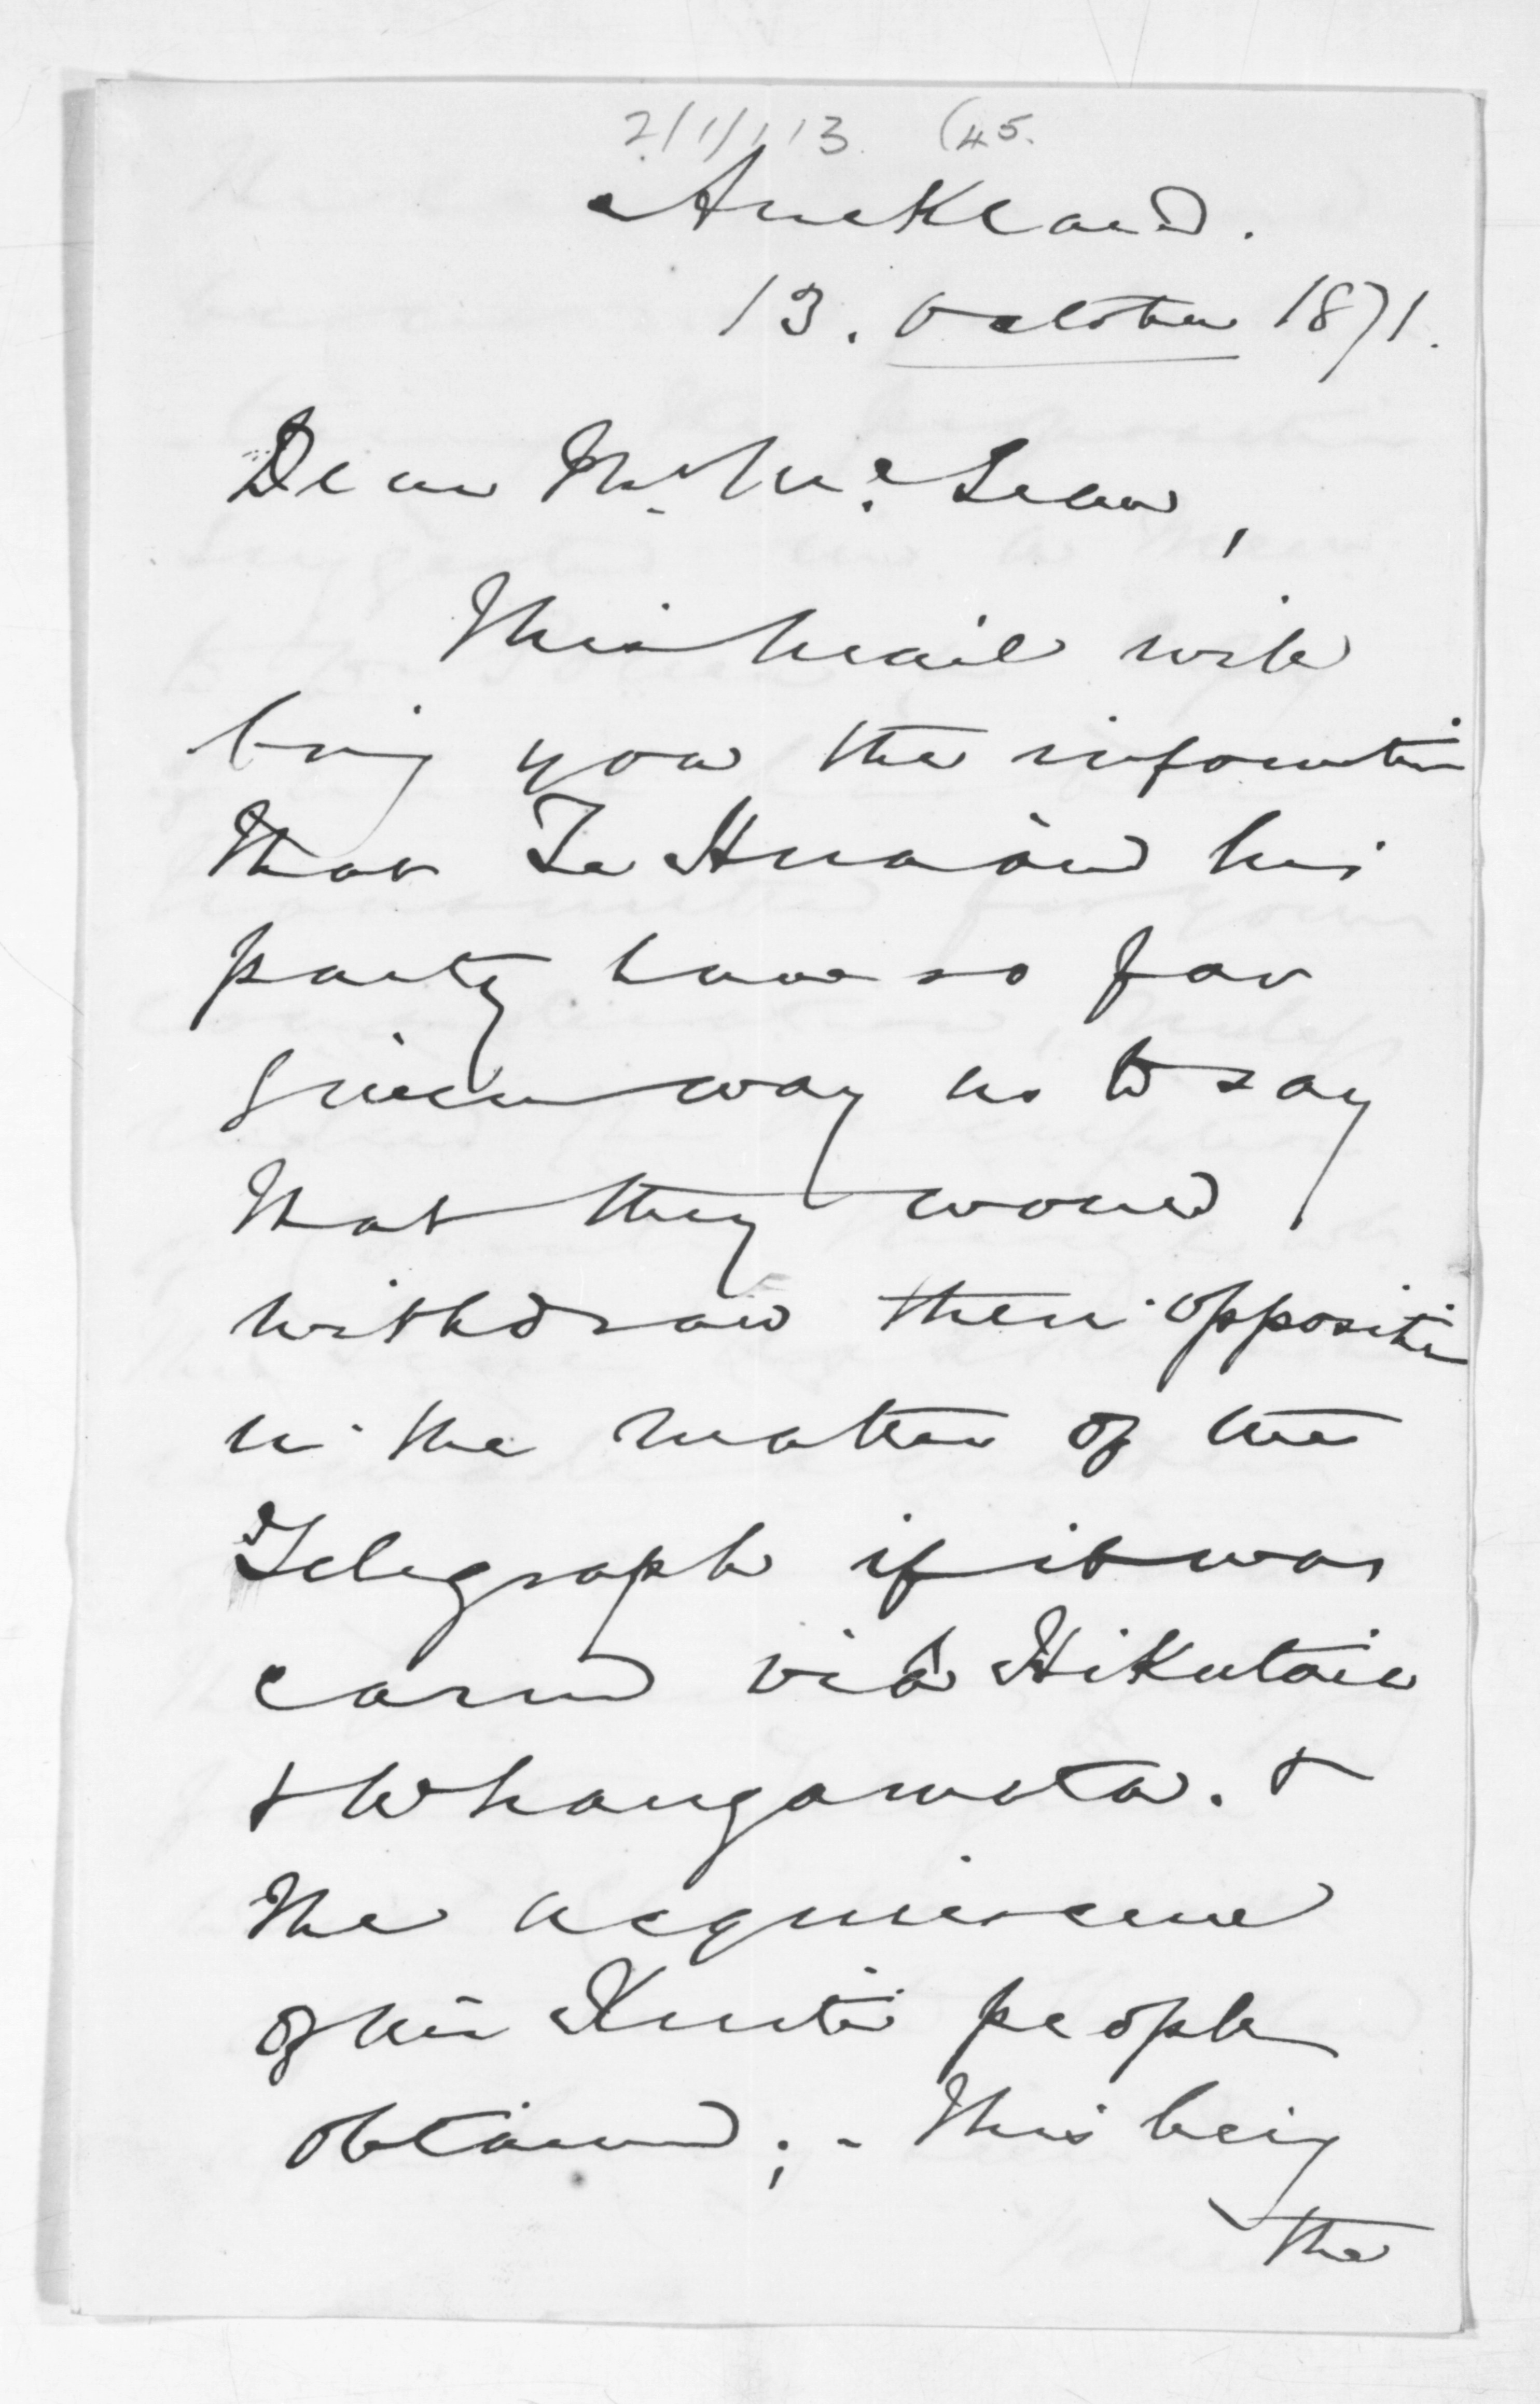 2/1/1/13 (45.
Auckland.
13. October 1871.
Dear Mr. McLean,
This mail will
bring you the information
that Te Hira and his
party have so far
given way as to say
that they would
withdraw their opposition
in the matter of the
Telegraph if it was
carried viâ Hikutaia
& Whangamata. &
the acquiescence
of his people
obtained; - This being
the